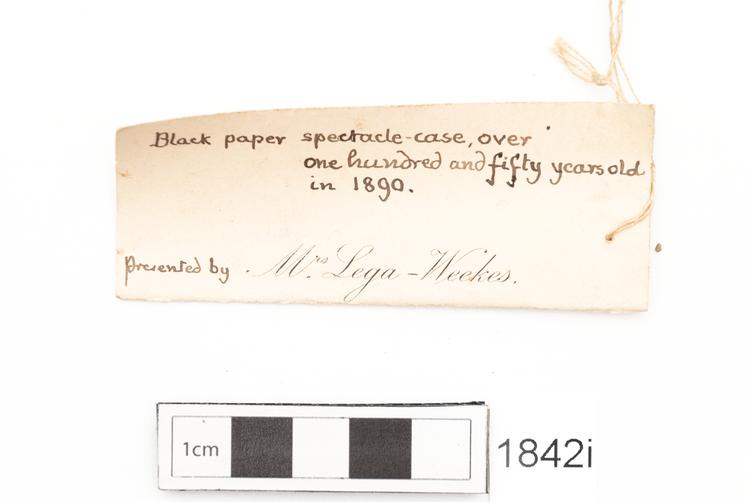 Black paper spectacle-case, over
one hundred and fifty years old
in 1890.
Presented by Mrs Lega-Weekes.
1cm
1842i